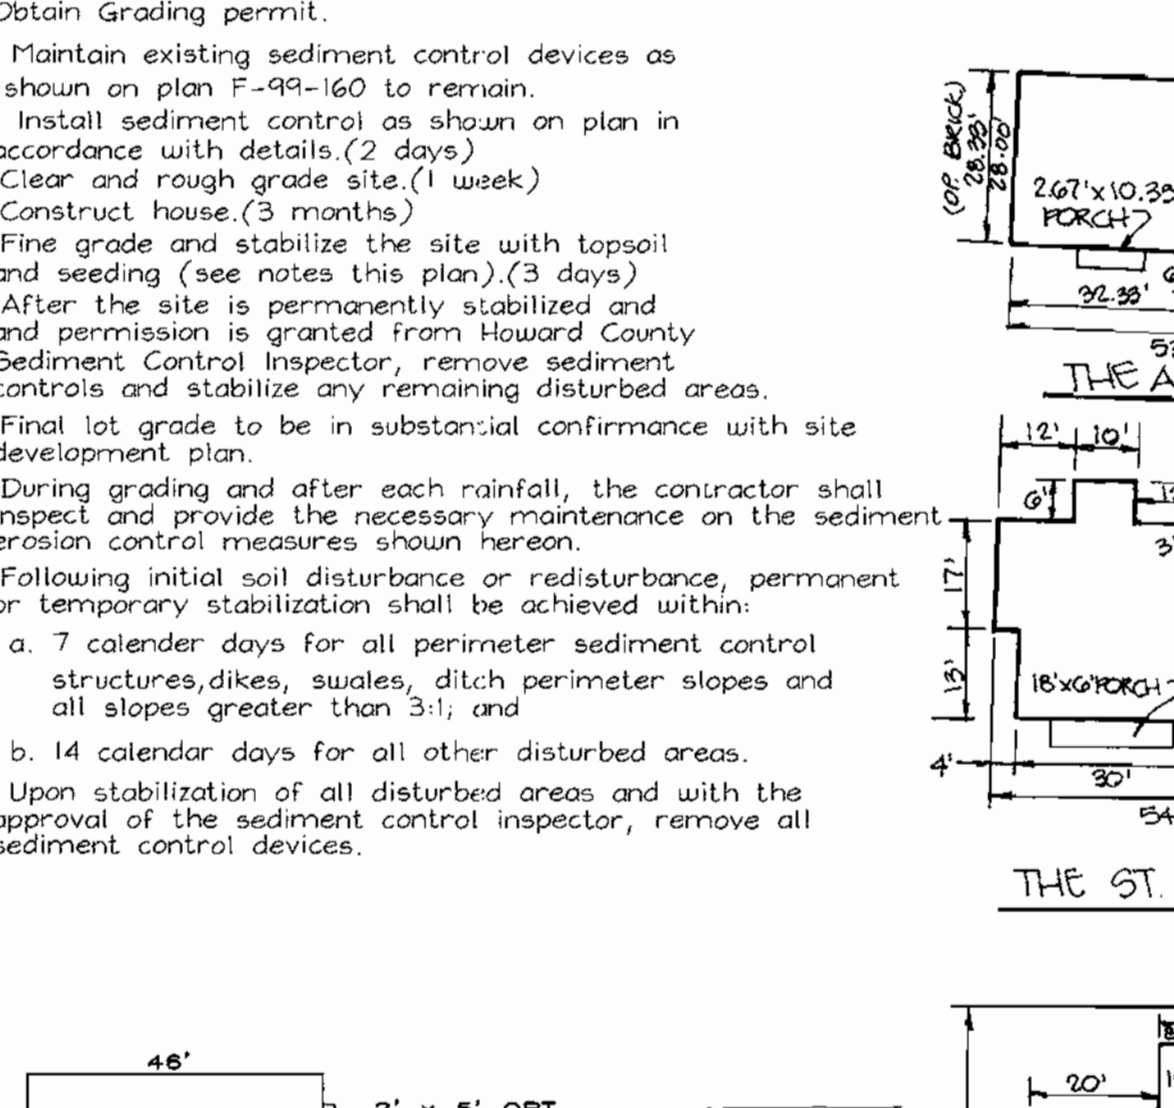 Obtain Grading permit.
Maintain existing sediment control devices as
shown on plan F-99-160 to remain.
Install sediment control as shown on plan in
accordance with details.(2 days)
Clear and rough grade site.(1 week)
Construct house.(3 months)
Fine grade and stabilize the site with topsoil
and seeding (see notes this plan).(3 days)
After the site is permanently stabilized and
and permission is granted from Howard County
Sediment Control Inspector, remove sediment
controls and stabilize any remaining disturbed areas.
Final lot grade to be in substantial confirmance with site
development plan.
During grading and after each rainfall, the contractor shall
inspect and provide the necessary maintenance on the sediment
erosion control measures shown hereon.
Following initial soil disturbance or redisturbance, permanent
or temporary stabilization shall be achieved within:
a. 7 calender days for all perimeter sediment control
structures,dikes, swales, ditch perimeter slopes and
all slopes greater than 3:1; and
b. 14 calendar days for all other disturbed areas.
Upon stabilization of all disturbed areas and with the
approval of the sediment control inspector, remove all
sediment control devices.
46'
2' x 5' OPT
(OP. BRICK)
28.33'
28.00'
2.67'x10.33
PORCH
32.33'
53
THE A
12' 10'
6'
3'
17'
13'
18'x6'PORCH
4'
30'
54
THE ST.
20'